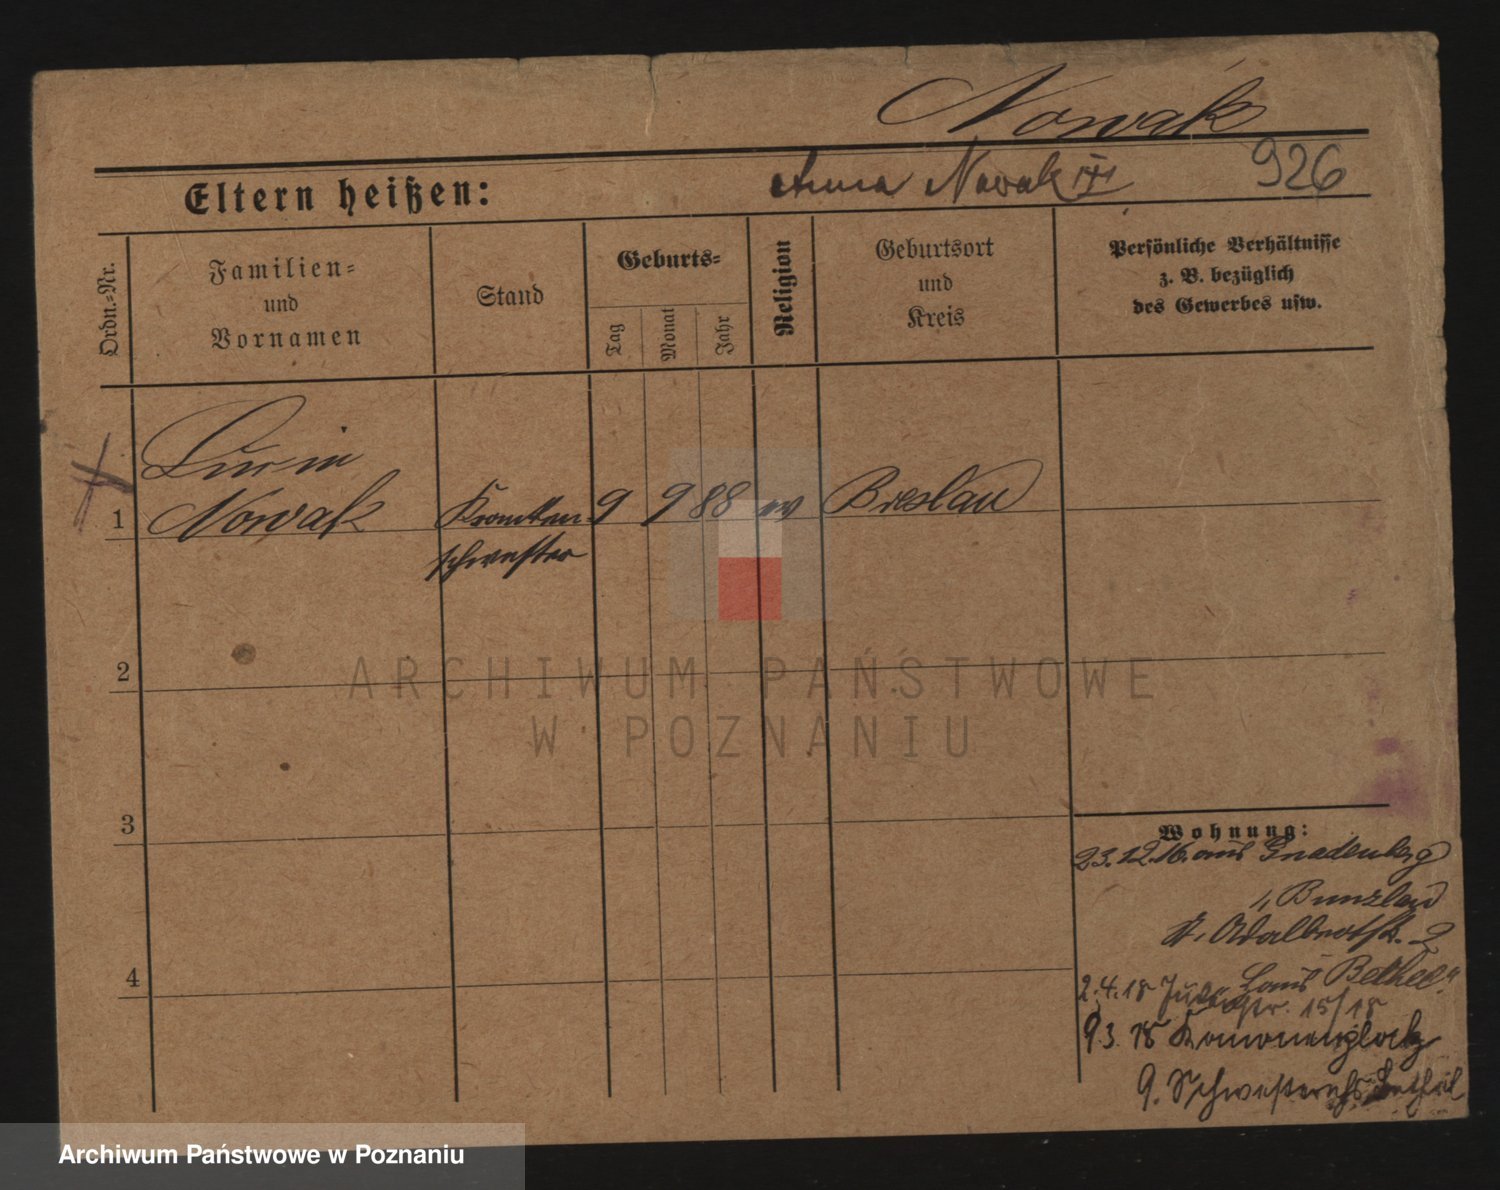 Nowak
Eltern heißen:
Anna Nowak
926
Ordn.-Nr.
Familien-
und
Vornamen
Stand
Geburts-
Tag
Monat
Jahr
Religion
Geburtsort
und
Kreis
Persönliche Verhältnisse
z. B. bezüglich
des Gewerbes usw.
1
Nowak
Kranken-
schwester
9
9
88
ev
Breslau
2
3
4
Wohnung:
23.12.16. aus Gnadenberg
Bunzlau
St. Adalbertstr. 2
Bethel
2.4.18
str. 15/18
9.3. 18 Kanonenplatz
9. Schwesternhs. Bethel
ARCHIWUM PAŃSTWOWE
W POZNANIU
Archiwum Państwowe w Poznaniu